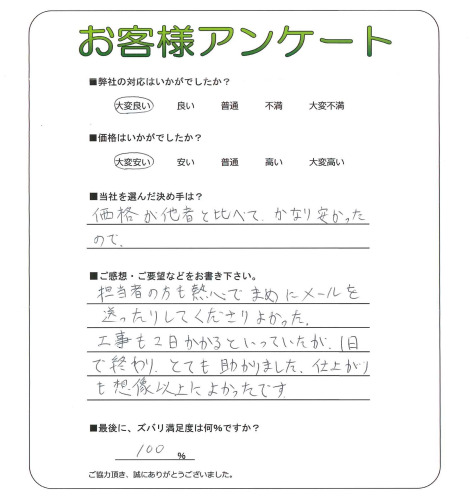 お客様アンケート
■弊社の対応はいかがでしたか？
大変良い 良い 普通 不満 大変不満
■価格はいかがでしたか？
大変安い 安い 普通 高い 大変高い
■当社を選んだ決め手は？
価格が他者と比べて、かなり安かった
ので、
■ご感想・ご要望などをお書き下さい。
担当者の方も熱心でまめにメールを
送ったりしてくださりよかった。
工事も2日かかるといっていたが、1日
で終わり、とても助かりました。仕上がり
も想像以上によかったです。
■最後に、ズバリ満足度は何％ですか？
100 %
ご協力頂き、誠にありがとうございました。